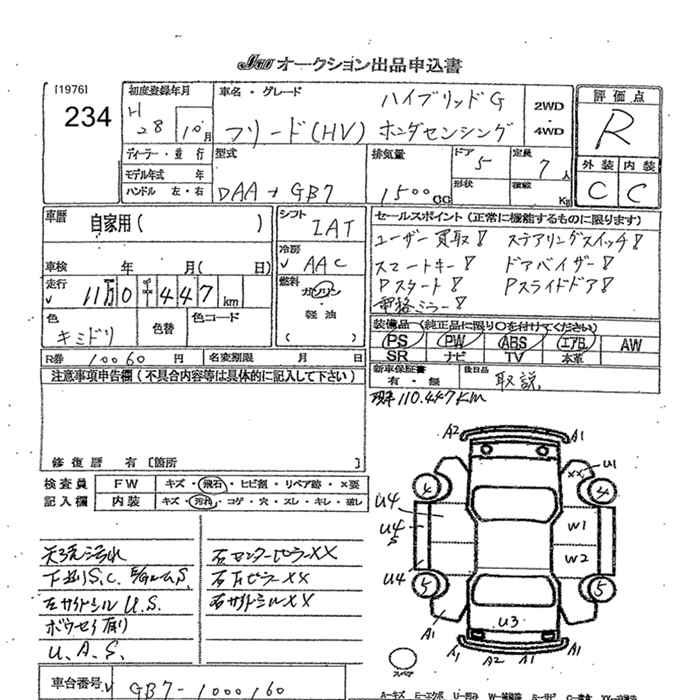 JAU オークション出品申込書
[1976]
234
初度登録年月
H 28 10月
車名・グレード
ハイブリッドG
フリード(HV) ホンダセンシング
2WD
・
4WD
評価点
R
外装 内装
C C
ディーラー・並行
モデル年式 年
ハンドル 左・右
型式
DAA-GB7
排気量
1500cc
ドア
5
形状
定員
7人
積載
Kg
車歴
自家用( )
車検 年 月( 日)
走行
11万0千447km
シフト
IAT
冷房
AAC
燃料
ガソリン
・
軽油
( )
色
キミドリ
色替
色コード
R券 10060円
名変期限 月 日
セールスポイント(正常に機能するものに限ります)
ユーザー買取! ステアリングスイッチ!
スマートキー! ドアバイザー!
Pスタート! Pスライドドア!
電格ミラー!
装備品(純正品に限り〇を付けてください)
PS PW ABS エアB AW
SR ナビ TV 本革
新車保証書
有・無
後日品
取説、
現車110.447KM
注意事項申告欄(不具合内容等は具体的に記入して下さい)
修復歴 有〔箇所 〕
検査員
記入欄
FW キズ・飛石・ヒビ割・リペア跡・X要
内装 キズ・汚れ・コゲ・穴・スレ・キレ・破れ
天張汚れ
下廻りS.C.
左サイドシルU.S.
ボウセイ有り
U、A、S、
右センターピラーXX
右サイドシルXX
A2
A1
U1
XX
4
4
U4
U4
S
U4
W1
W2
5
5
U3
A1
A1
A2
A1
A1
スペア
車台番号
GB7-1000160